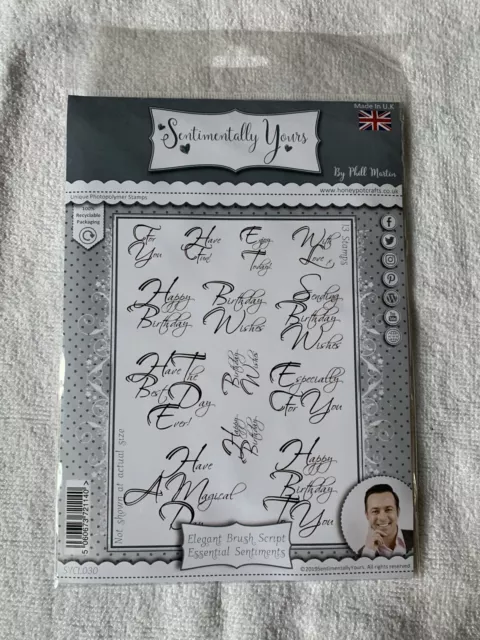 Made In U.K
Sentimentally Yours
By Phill Martin
Unique Photopolymer Stamps
www.honeypotcrafts.co.uk
100%
Recyclable
Packaging
13 Stamps
For
You
Have
Fun!
Enjoy
Today!
With
Love
Happy
Birthday
Birthday
Wishes
Sending
Birthday
Wishes
Have The
Best Day
Ever!
Birthday
Wishes
Especially
For You
Happy
Birthday
Have
A Magical
Happy
Birthday
To You
Not shown at actual size
Elegant Brush Script
Essential Sentiments
5 060673 721147 >
SYCL030
©2019Sentimentally Yours. All rights reserved